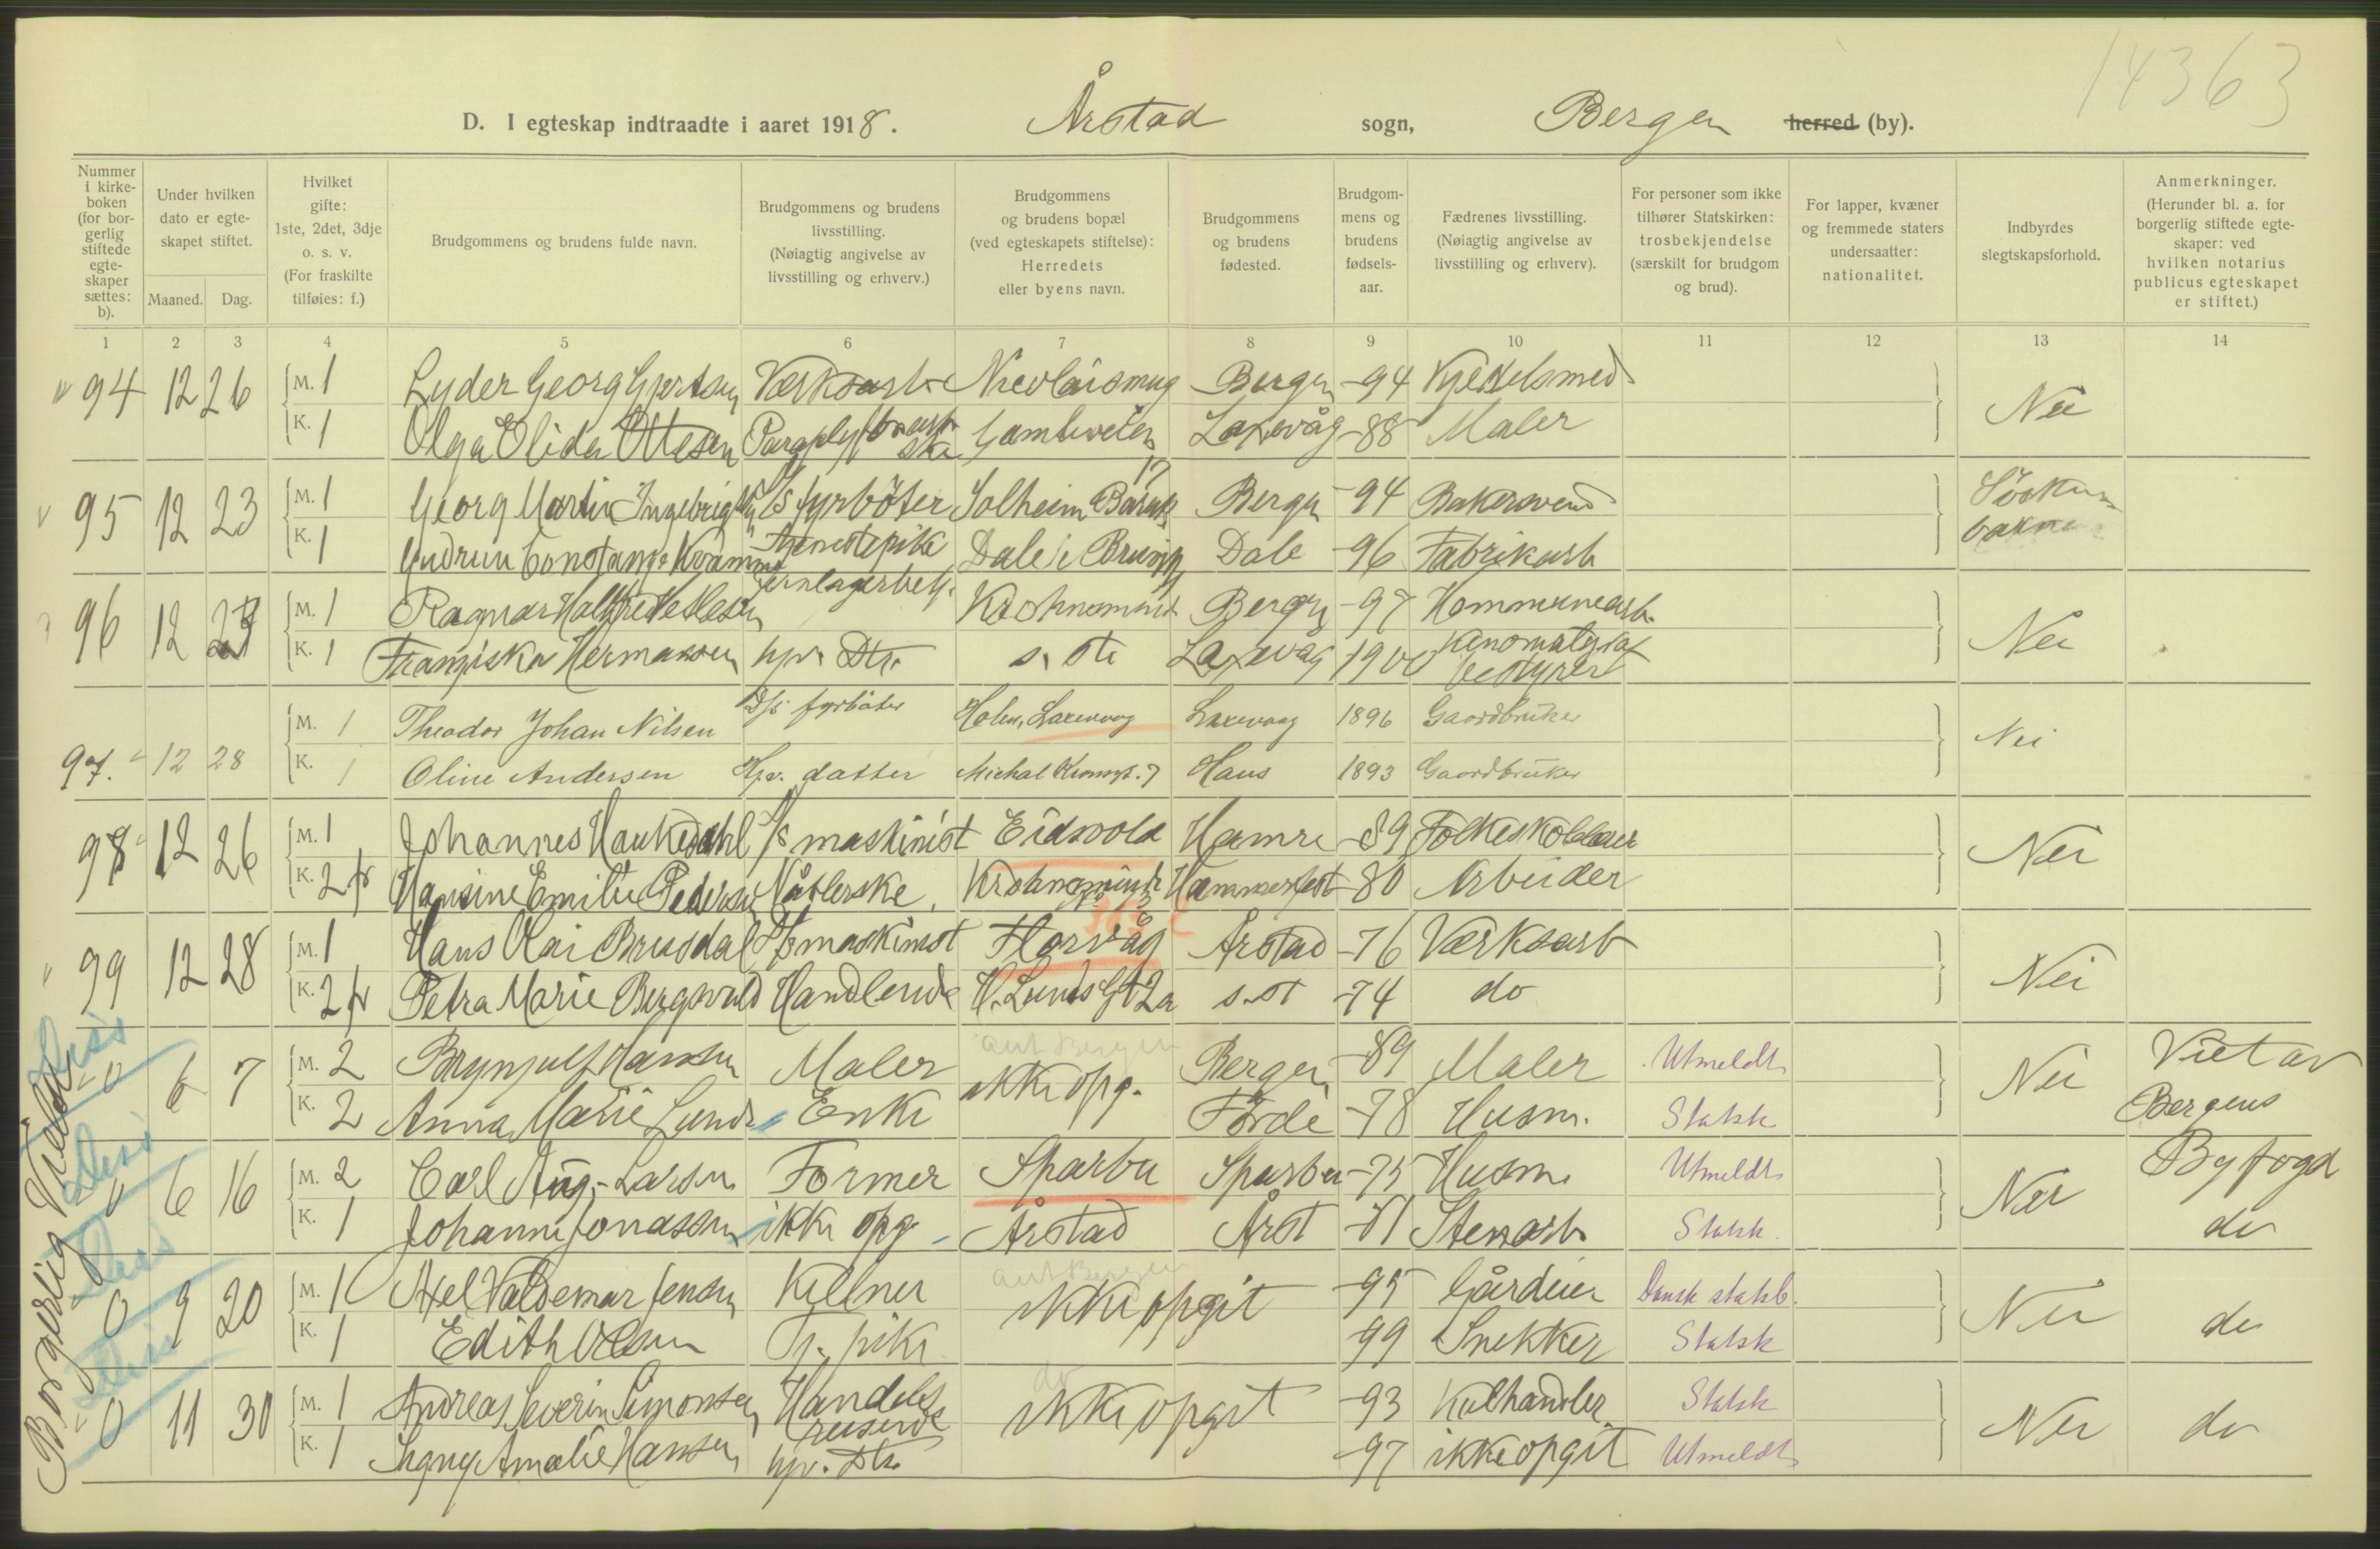 14363
D. I egteskap indtraadte i aaret 1918. Årstad sogn, Bergen herred (by).
Nummer i kirke-boken (for bor-gerlig stiftede egte-skaper sættes: b).
Under hvilken dato er egte-skapet stiftet.
Maaned. Dag.
Hvilket gifte: 1ste, 2det, 3dje o. s. v. (For fraskilte tilføies: f.)
Brudgommens og brudens fulde navn.
Brudgommens og brudens livsstilling. (Nøiagtig angivelse av livsstilling og erhverv.)
Brudgommens og brudens bopæl (ved egteskapets stiftelse): Herredets eller byens navn.
Brudgommens og brudens fødested.
Brudgom-mens og brudens fødsels-aar.
Fædrenes livsstilling. (Nøiagtig angivelse av livsstilling og erhverv).
For personer som ikke tilhører Statskirken: trosbekjendelse (særskilt for brudgom og brud).
For lapper, kvæner og fremmede staters undersaatter: nationalitet.
Indbyrdes slegtskapsforhold.
Anmerkninger. (Herunder bl. a. for borgerlig stiftede egte-skaper: ved hvilken notarius publicus egteskapet er stiftet.)
1 2 3 4 5 6 7 8 9 10 11 12 13 14
94 12 26 M. 1 Lyder Georg Gjertsen Værksarb Nicolaismug Bergen -94 Kjedelsmed Nei
K. 1 Olga Elida Ottesen Laxevåg -88 Maler
95 12 23 M. 1 Georg Martin D/s fyrbøter Solheim Barak 17 Bergen -94 Bakersvend Søskenbarn
K. 1 Gudrun Constanse Kvamme Tjenestepike Dale i Bruvik Dale -96 Fabrikarb
96 12 M. 1 Ragnar Jernlagerbetj. Krohnsminde Bergen -97 Kommunearb. Nei
K. 1 Franziska Hermansen hjv. Dtr. s. st. Laxevåg 1900 Kinomatograf bestyrer
97. 12 28 M. 1 Theodor Johan Nilsen D/s fyrbøter Holen, Laxevaag Laxevaag 1896 Gaardbruker Nei
K. 1 Oline Andersen Hjv. datter Michal Krohnsgt. 7 Haus 1893 Gaardbruker
98 12 26 M. 1 Johannes Haukedahl D/s maskinist Eidsvold Hamre -89 Folkeskolelærer Nei
K. 2 f Hansine Emilie Pedersen Nåtlerske Krohnsminde Hammerfest -80 Arbeider
99 12 28 M. 1 Hans Olai Brusdal D/s maskinist Florvåg Årstad -76 Værksarb Nei
K. 2 f Petra Marie Bergsvold Handlende H. Lunds Gt 2a s. st -74 do
Borgerlig Viede
0 6 7 M. 2 Brynjulf Hansen Maler ant Bergen ikke opg. Bergen -89 Maler Utmeldt Nei Viet av
K. 2 Anna Marie Lunde Enke Førde -78 Husm. Statsk Bergens
0 6 16 M. 2 Carl Aug. Larsen Former Sparbu Sparbu -75 Husm. Utmeldt Nei Byfogd
K. 1 Johanne Jonassen ikke opg Årstad Årst -81 Stenarb. Statsk. do
0 9 20 M. 1 Axel Valdemar Jensen Kellner ant Bergen ikke opgit -95 Gårdeier Dansk statsb. Nei do
K. 1 Edith Olsen Tj. pike -99 Snekker Statsk
0 11 30 M. 1 Andreas Severin Simonsen Handelsreisende do ikke opgit -93 Kulhandler Statsk Nei do
K. 1 Signy Amalie Hansen hjv. Dtr. -97 ikke opgit Utmeldt